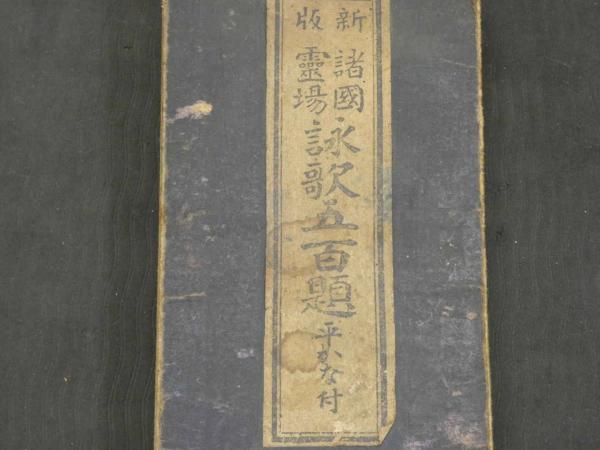 新版
諸國
靈場
詠歌五百題
平かな付